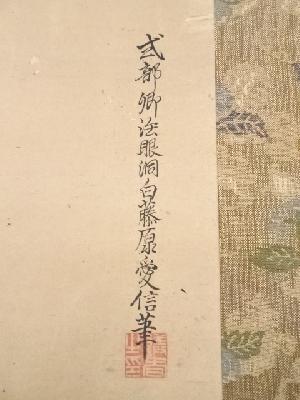 式部卿法眼洞白藤原愛信筆